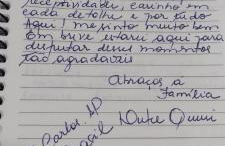 receptividade, carinho em
cada detalhe e por tudo
aqui! me sinto muito bem
Em breve estarei aqui para
disfrutar desses momentos
tão agradáveis
Abraços a
Família
Carlos